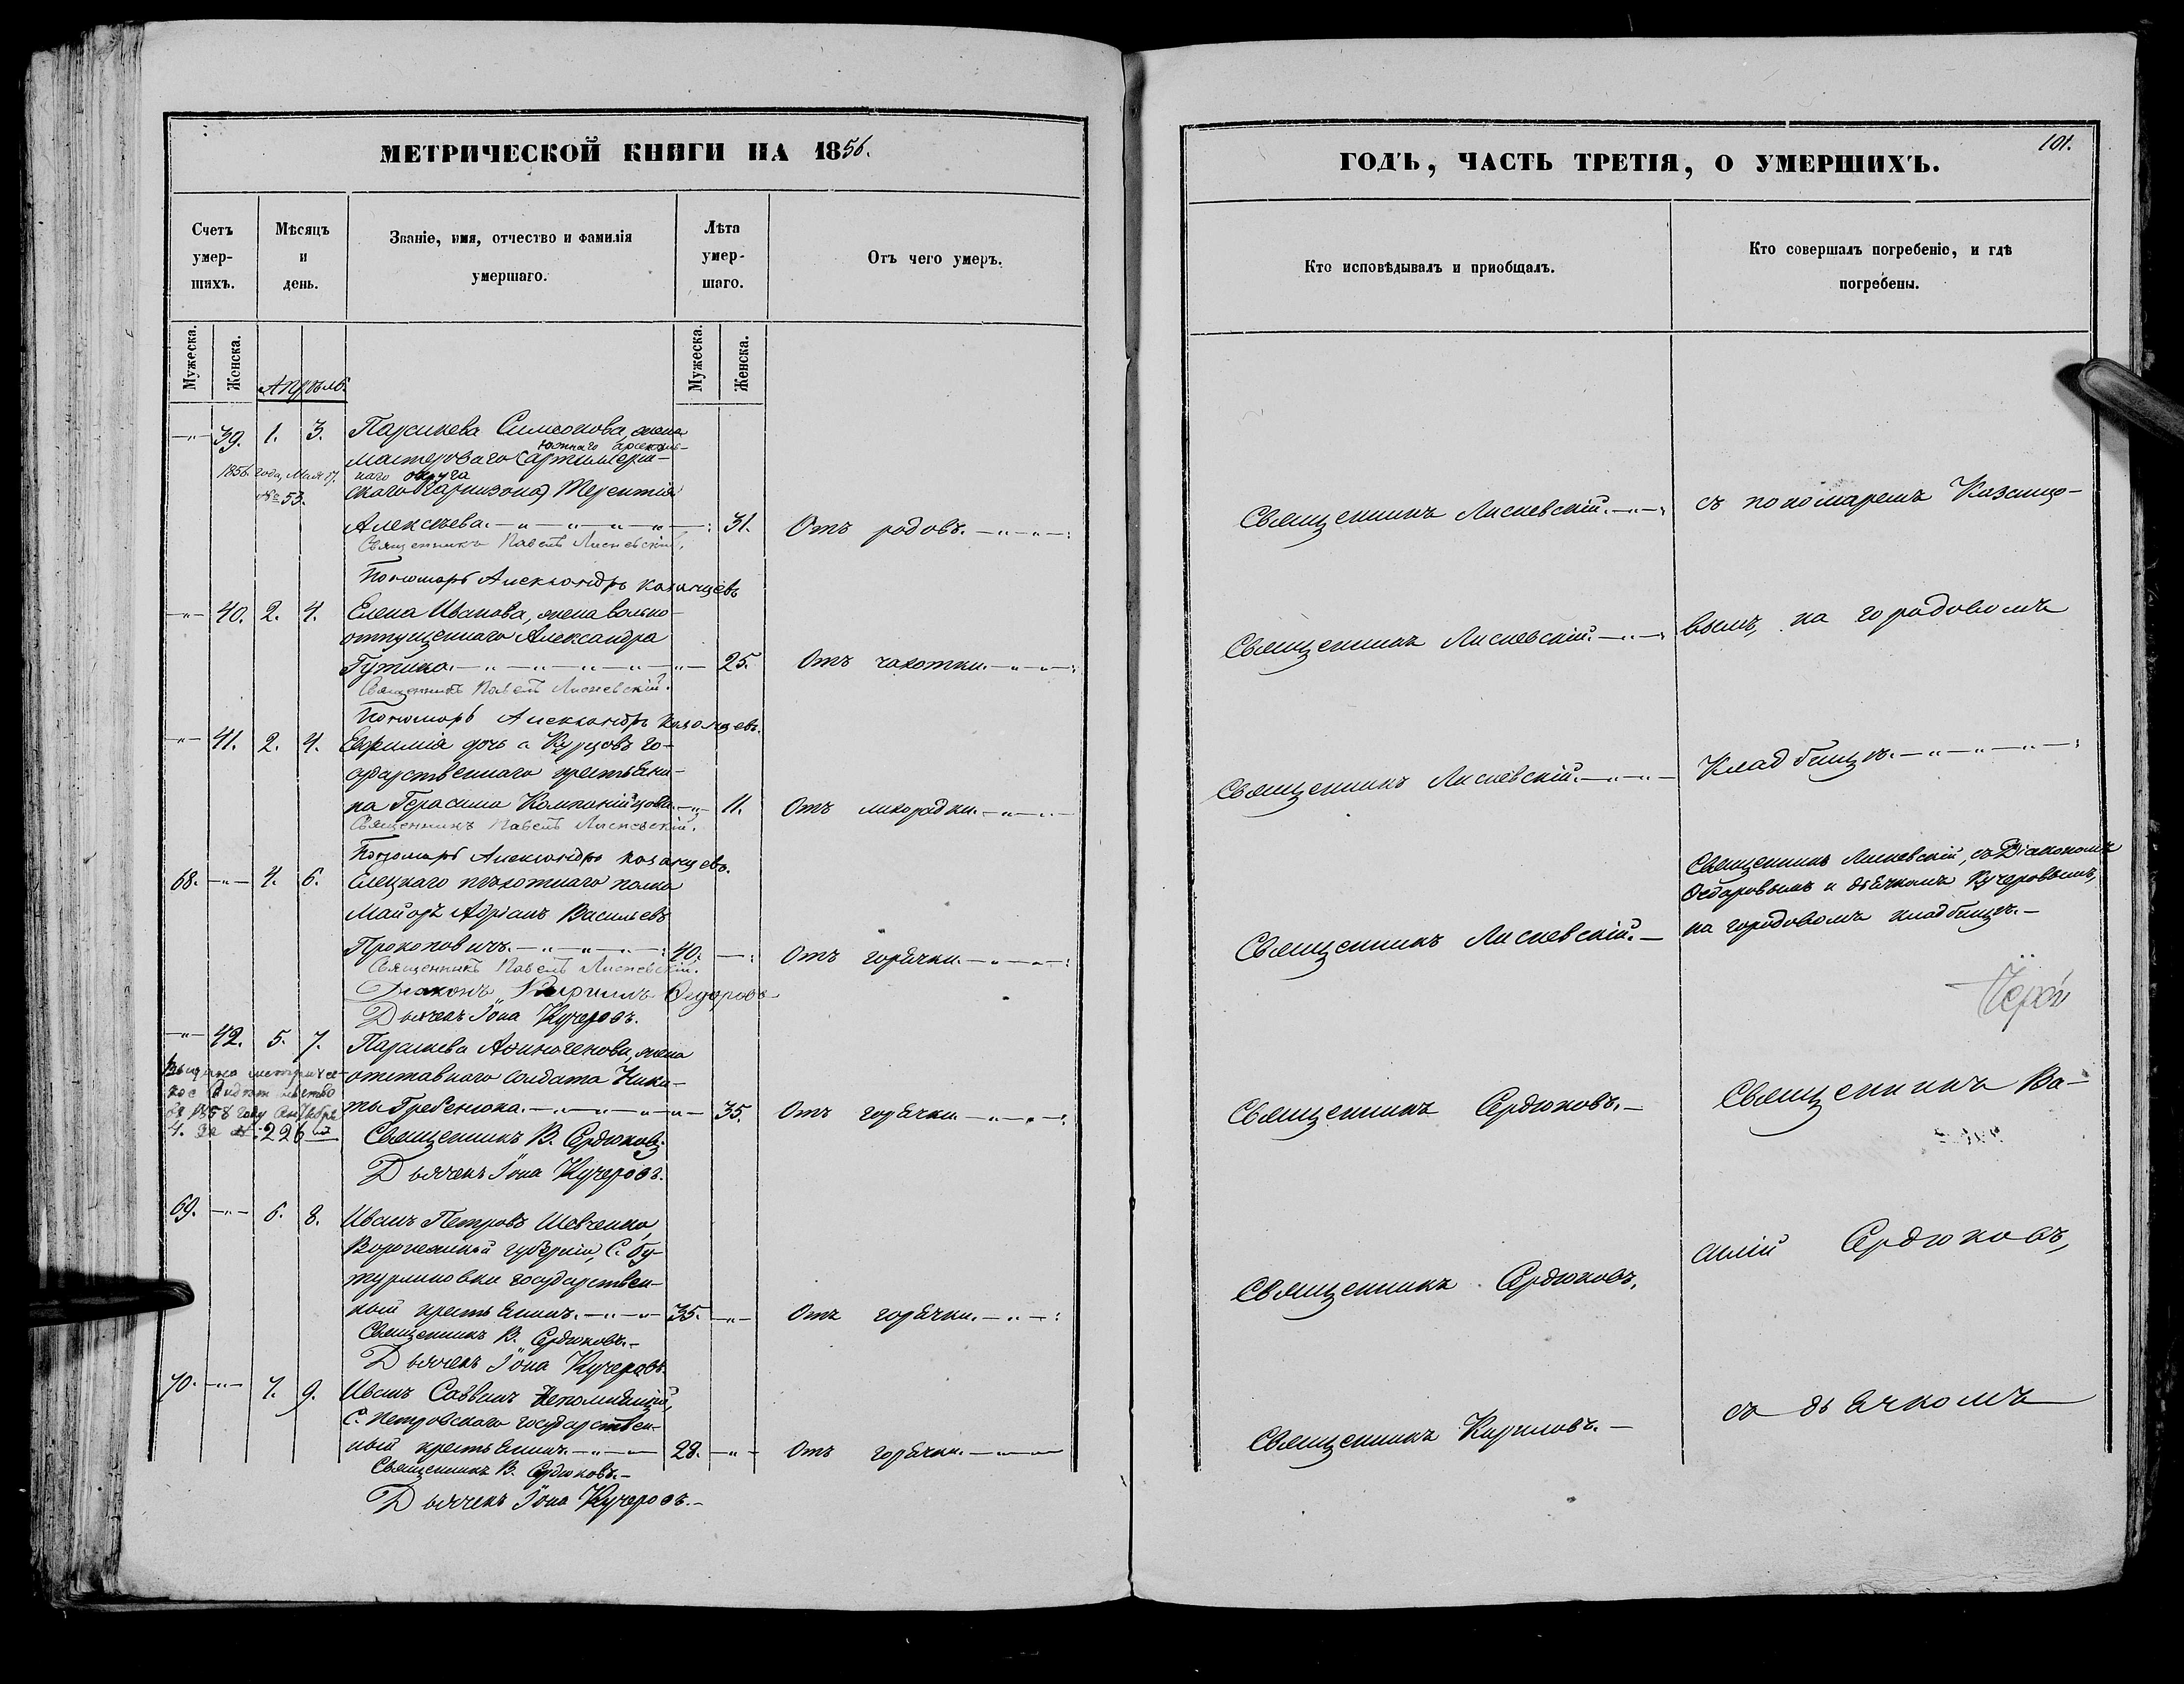 МЕТРИЧЕСКОЙ КНИГИ НА 1856.
Счетъ умер-шихъ.
Мѣсяцъ и день.
Званіе, имя, отчество и фамилія умершаго.
Лѣта умер-шаго.
Отъ чего умеръ.
Мужеска.
Женска.
Мужеска.
Женска.
Апрѣль.
—"— 39. 1. 3. Параскева Симеонова, жена
южнаго
мастероваго (артиллерій-
1856 года, Мая 17. наго округа
№ 53. скаго гарнизона) Терентія
Алексѣева. 31. Отъ родовъ.
Священникъ Павелъ Лисневскій.
Пономарь Александръ Казанцевъ
—"— 40. 2. 4. Елена Иванова, жена вольно-
отпущеннаго Александра
25. Отъ чахотки.
Священникъ Павелъ Лисневскій.
Пономарь Александръ Казанцевъ.
—"— 41. 2. 4. Евфимія дочь го-
сударственнаго крестьяни-
на Герасима 11. Отъ лихорадки.
Священникъ Павелъ Лисневскій.
Пономарь Александръ Казанцевъ.
68. —"— 4. 6. Елецкаго пѣхотнаго полка
Майоръ Адріанъ Васильевъ
Прокоповичъ. 40. Отъ горячки.
Священникъ Павелъ Лисневскій.
Діаконъ Кириллъ Ѳедоровъ
Дьячекъ Іона Кучеровъ.
—"— 42. 5. 7. Параскева Аѳиногенова, жена
отставнаго солдата Ники-
ты Гребенюка. 35. Отъ горячки.
4. За №: 226
Священникъ В. Сердюковъ.
Дьячекъ Іона Кучеровъ.
69. —"— 6. 8. Иванъ Петровъ Шевченко,
Воронежской губерніи, С. Бу-
турлиновки государствен-
ный крестьянинъ. 35. Отъ горячки.
Священникъ В. Сердюковъ.
Дьячекъ Іона Кучеровъ.
70. —"— 7. 9. Иванъ Саввинъ
С. Петровскаго государствен-
ный крестьянинъ. 28. Отъ горячки.
Священникъ В. Сердюковъ.
Дьячекъ Іона Кучеровъ.
101.
ГОДЪ, ЧАСТЬ ТРЕТІЯ, О УМЕРШИХЪ.
Кто исповѣдывалъ и пріобщалъ.
Кто совершалъ погребеніе, и гдѣ погребены.
Священникъ Лисневскій. съ пономаремъ Казанцо-
Священникъ Лисневскій. вымъ, на городовомъ
Священникъ Лисневскій. Кладбищѣ.
Священникъ Лисневскій, съ Діакономъ
Ѳедоровымъ и дьячкомъ Кучеровымъ,
Священникъ Лисневскій. на городовомъ кладбищѣ.
Священникъ Сердюковъ. Священникъ Ва-
Священникъ Сердюковъ. силій Сердюковъ,
Священникъ Кириловъ. съ дьячкомъ